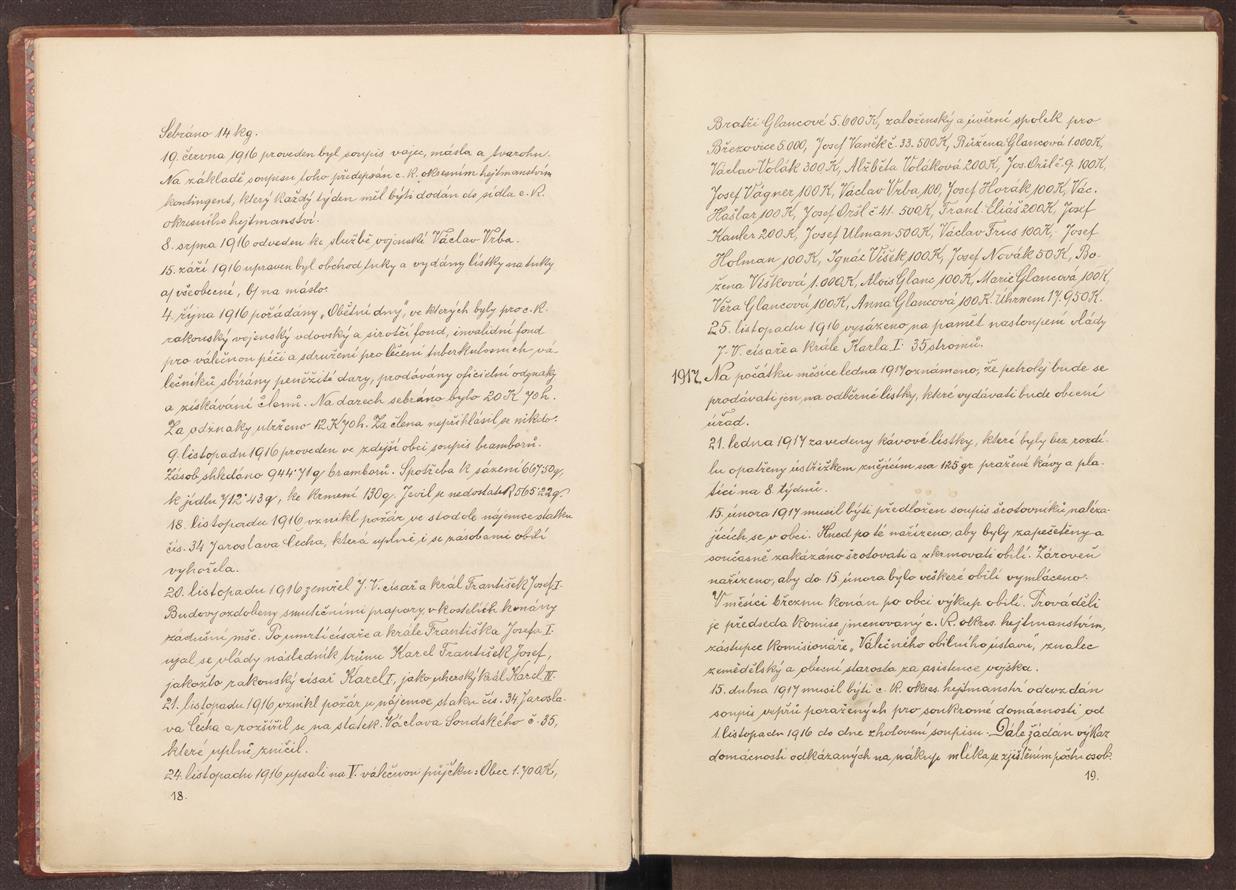 Sebráno 14 kg.
19. června 1916 proveden byl soupis vajec, másla a tvarohu.
Na základě soupisu toho předepsán c. k. okresním hejtmanstvím
kontingent, který každý týden měl býti dodán do sídla c. k.
okresního hejtmanství.
8. srpna 1916 odveden ke službě vojenské Václav Vrba.
15. září 1916 upraven byl obchod tuky a vydány lístky na tuky
a) všeobecné, b) na máslo.
4. října 1916 pořádány „Obětní dny", ve kterých byly pro c. k.
rakouský vojenský vdovský a sirotčí fond, invalidní fond
pro válečnou péči a sdružení pro léčení tuberkulosních vá-
lečníků sbírány peněžité dary, prodávány oficielní odznaky
a získávání členů. Na darech sebráno bylo 20 K 70 h.
Za odznaky utrženo 12 K 70 h. Za člena nepřihlásil se nikdo.
9. listopadu 1916 proveden ve zdejší obci soupis bramborů.
Zásob shledáno 944·71 q bramborů. Spotřeba k sázení 667·50 q,
k jídlu 712·43 q, ke krmení 130 q. Jevil se nedostatek 565·22 q.
18. listopadu 1916 vznikl požár ve stodole nájemce statku
čís. 34 Jaroslava Čecha, která uplně i se zásobami obilí
vyhořela.
20. listopadu 1916 zemřel J. V. císař a král František Josef I.
Budovy ozdobeny smutečními prapory, v kostelích konány
zádušní mše. Po umrtí císaře a krále Františka Josefa I.
ujal se vlády následník trůnu Karel František Josef,
jakožto rakouský císař Karel I., jako uherský král Karel IV.
21. listopadu 1916 vznikl požár u nájemce statku čís. 34 Jarosla-
va Čecha a rozšířil se na statek Václava Soudského č 35,
které uplně zničil.
24. listopadu 1916 upsali na V. válečnou půjčku: Obec 1.700 K,
18.
Bratři Glancové 5.600 K, záloženský a úvěrní spolek pro
Březovice 5.000, Josef Vaněk č. 33. 500 K, Růžena Glancová 1.000 K,
Václav Volák 300 K, Alžběta Voláková 200 K, Jos. Oršl č. 9. 100 K,
Josef Vágner 100 K, Václav Vrba 100, Josef Horák 100 K, Vác.
Hašlar 100 K, Josef Oršl č 41. 500 K, Frant. Eliáš 200 K, Josef
Kauler 200 K, Josef Ulman 500 K, Václav Frus 100 K, Josef
Holman 100 K, Ignác Víšek 100 K, Josef Novák 50 K, Bo-
žena Víšková 1.000 K, Alois Glanc 100 K, Marie Glancová 100 K,
Věra Glancová 100 K, Anna Glancová 100 K. Úhrnem 17.950 K.
25. listopadu 1916 vysázeno na pamět nastoupení vlády
J. V. císaře a krále Karla I. 35 stromů.
1917. Na počátku měsíce ledna 1917 oznámeno, že petrolej bude se
prodávati jen na odběrné lístky, které vydávati bude obecní
úřad.
21. ledna 1917 zavedeny kávové lístky, které byly bez rozdí-
lu opatřeny ústřižkem znějícím na 125 gr pražené kávy a pla-
tící na 8 týdnů.
15. února 1917 musil býti předložen soupis šrotovníků naléza-
jících se v obci. Hned po té nařízeno, aby byly zapečetěny a
současně zakázáno šrotovati a zkrmovati obilí. Zároveň
nařízeno, aby do 15. února bylo veškeré obilí vymláceno.
V měsíci březnu konán po obci výkup obilí. Prováděli
je předseda komise jmenovaný c. k. okres. hejtmanstvím,
zástupce komisionáře „Válečného obilního ústavu", znalec
zemědělský a obecní starosta za asistence vojska.
15. dubna 1917 musil býti c. k. okres. hejtmanství odevzdán
soupis vepřů poražených pro soukromé domácnosti od
1. listopadu 1916 do dne zhotovení soupisu. Dále žádán výkaz
domácností odkázaných na nákup mléka, se zjištěním počtu osob.
19.